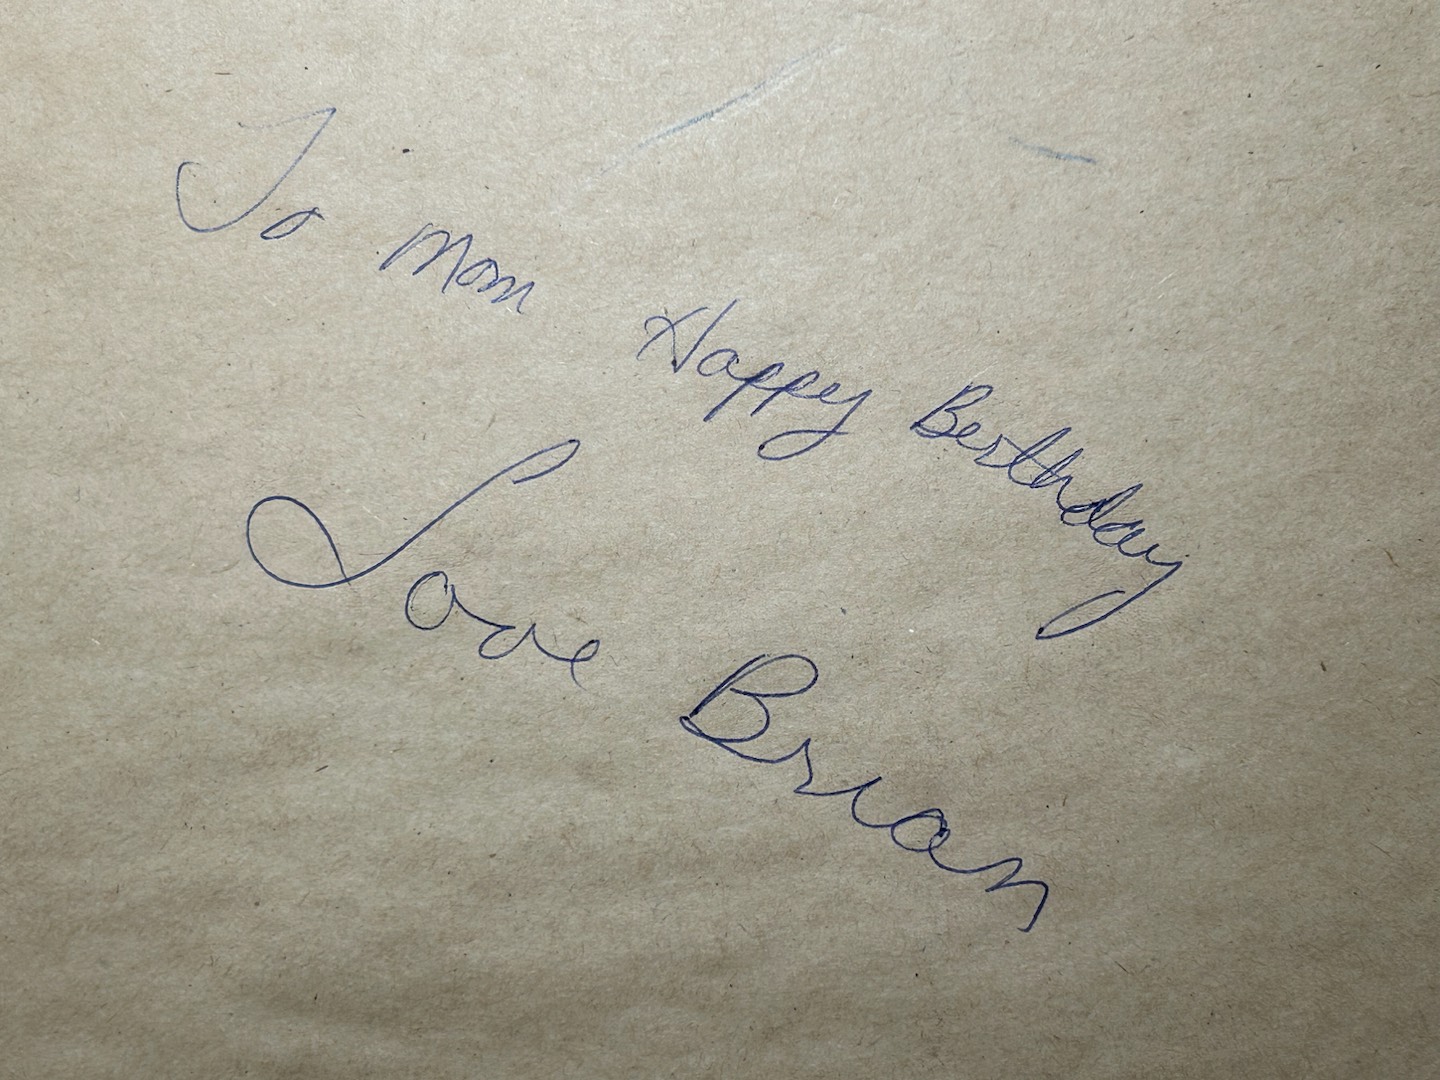 To Mom Happy Berthday
Love Brian